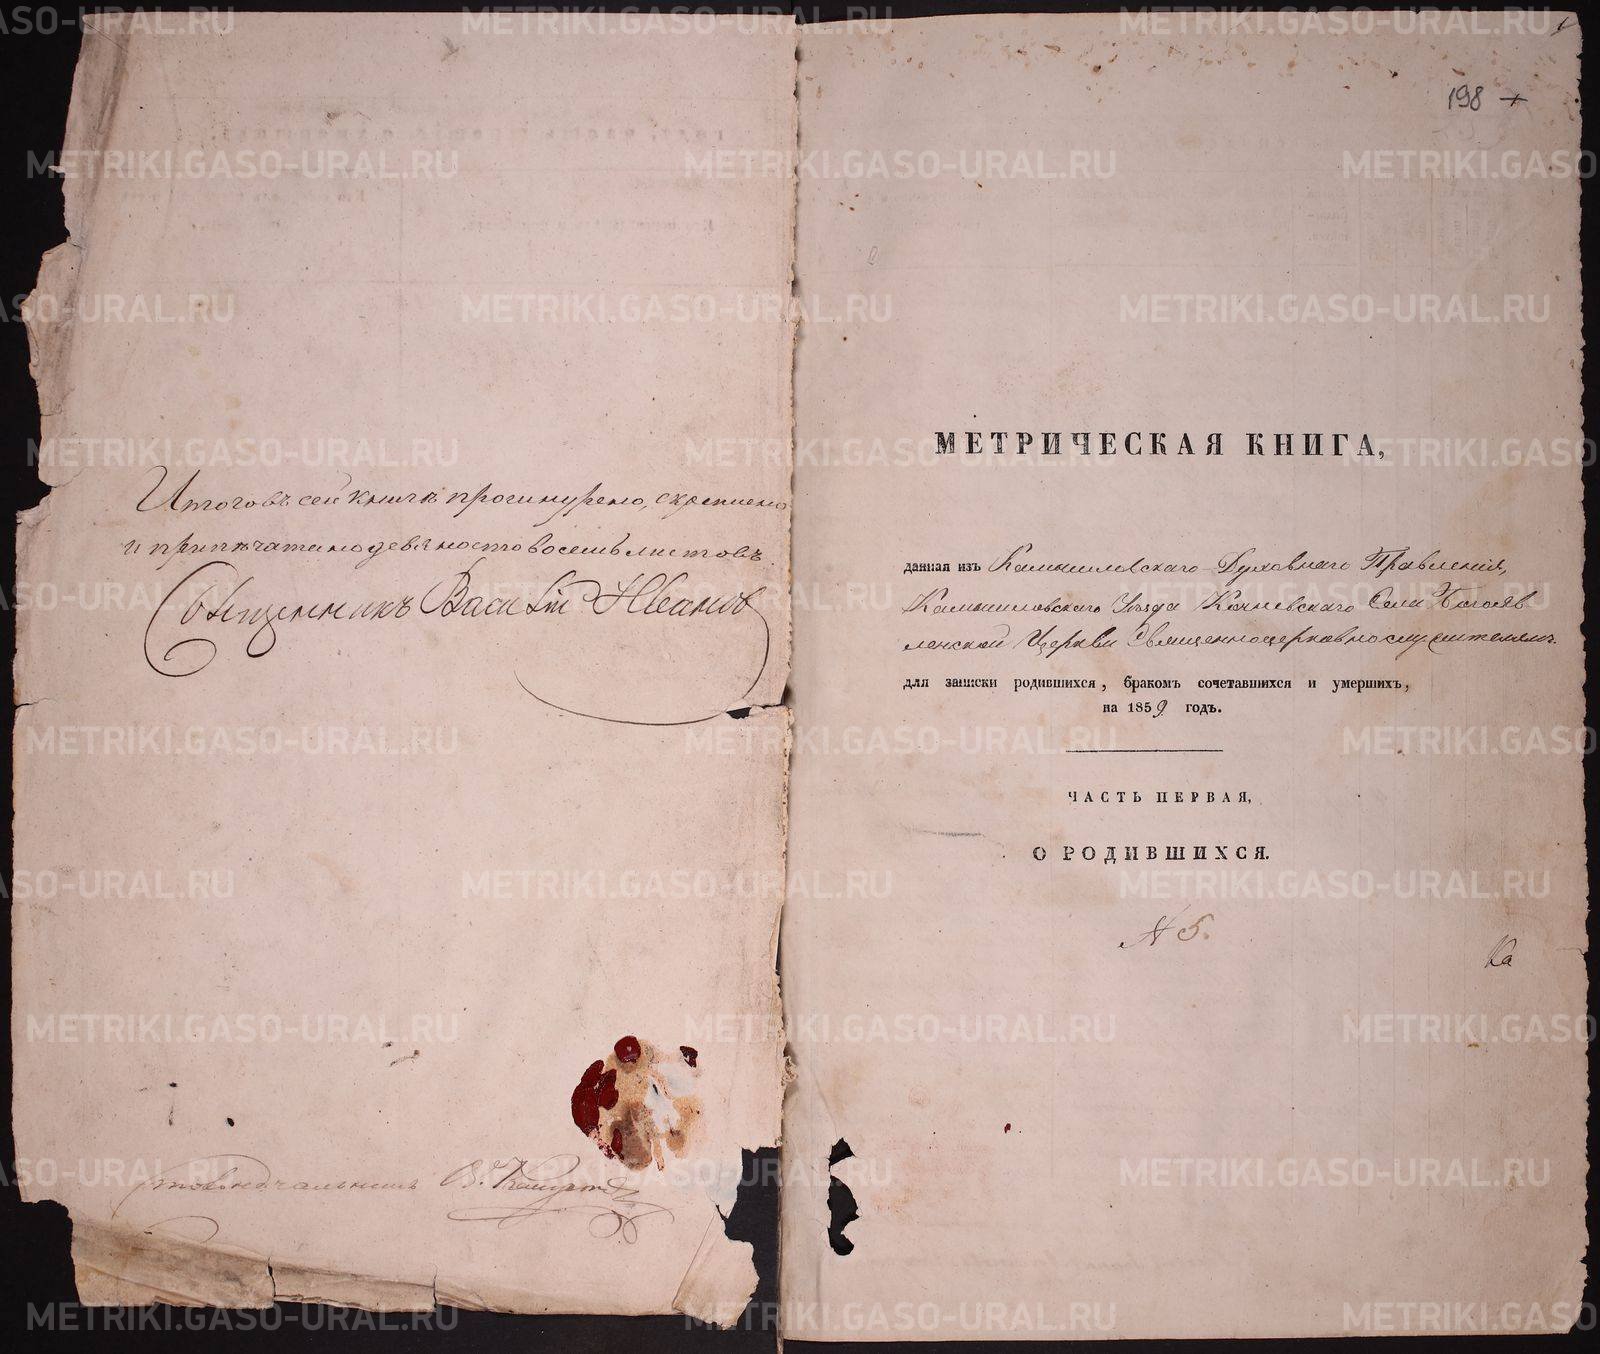 Итого въ сей книгѣ прошнурено, скрѣплено
и припѣчатано девяносто восемь листовъ
Священникъ Василій Ивановъ
Столоначальникъ В.
198 +
МЕТРИЧЕСКАЯ КНИГА,
данная изъ Камышловскаго Духовнаго Правленія,
Камышловскаго Уѣзда Кочневскаго Села Богояв
ленской Церкви Священноцерковнослужителямъ
для записки родившихся, бракомъ сочетавшихся и умершихъ,
на 1859 годъ.
ЧАСТЬ ПЕРВАЯ,
О РОДИВШИХСЯ.
№ 5.
Ка
METRIKI.GASO-URAL.RU